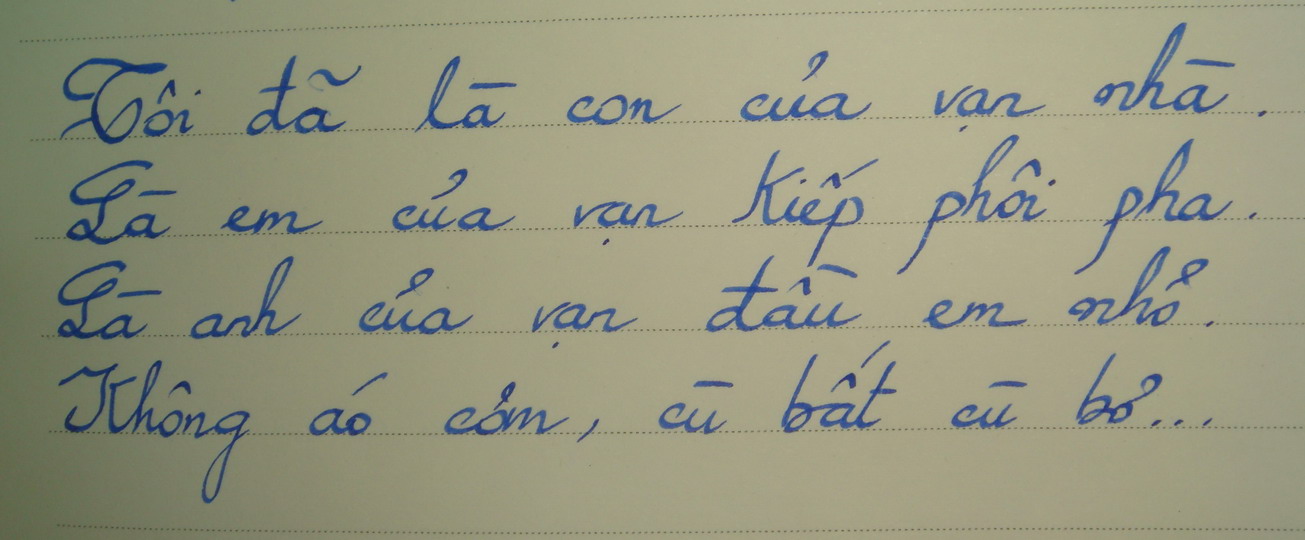 Tôi đã là con của vạn nhà.
Là em của vạn kiếp phôi pha.
Là anh của vạn đầu em nhỏ.
Không áo cơm, cù bất cù bơ...